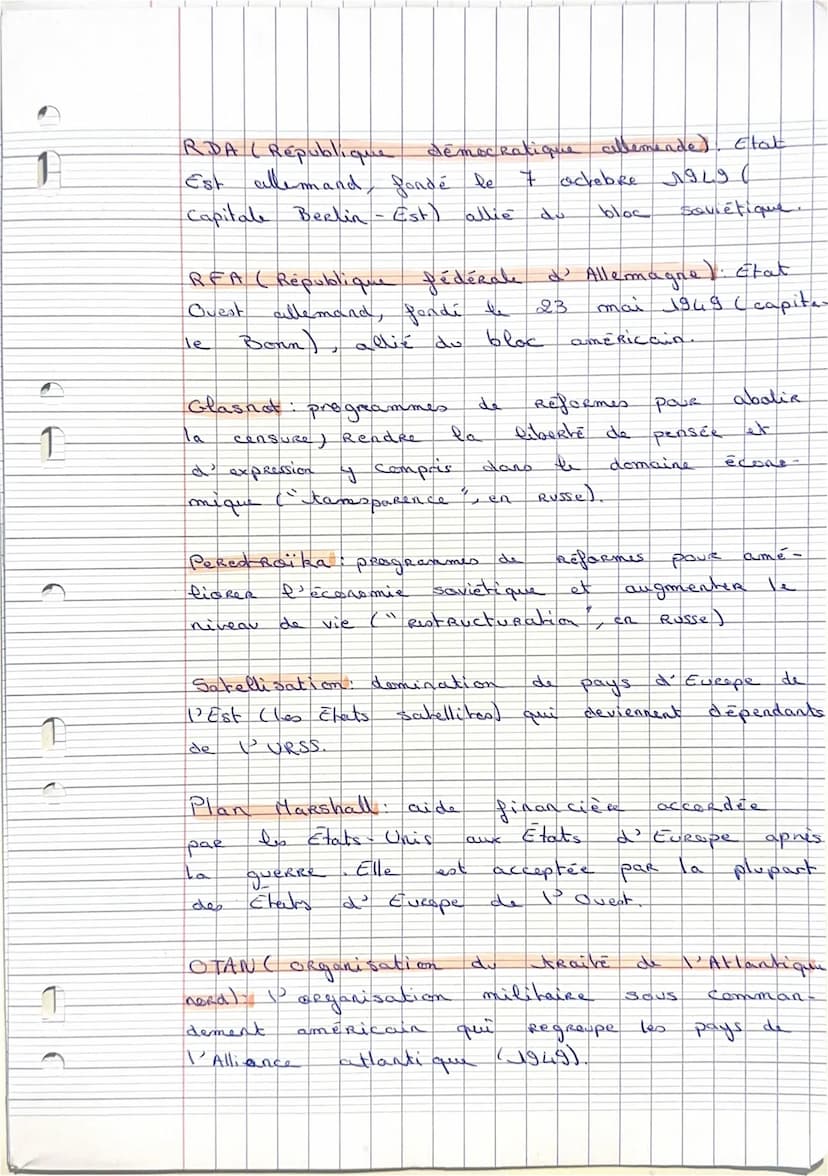 RDA (République démocratique allemande). Etat
Est allemand, fondé le 7 octobre 1949 (
capitale Berlin-Est) allié du bloc soviétique.
RFA (République fédérale d'Allemagne): Etat
Ouest allemand, fondé le 23 mai 1949 (capita-
le Bonn), allié du bloc américain.
Glasnot: programmes de réformes pour abolir
la censure, rendre la liberté de pensée et
d'expression y compris dans le domaine écono-
mique ("transparence", en russe).
Perestroïka: programmes de réformes pour amé-
liorer l'économie soviétique et augmenter le
niveau de vie ("restructuration", en Russe)
Satellisation: domination de pays d'Europe de
l'Est (les Etats satellites) qui deviennent dépendants
de l'URSS.
Plan Marshall: aide financière accordée
par les États-Unis aux États d'Europe après
la guerre. Elle est acceptée par la plupart
des États d'Europe de l'Ouest.
OTAN (organisation du traité de l'Atlantique
nord): l'organisation militaire sous comman-
dement américain qui regroupe les pays de
l'Alliance atlantique (1949).